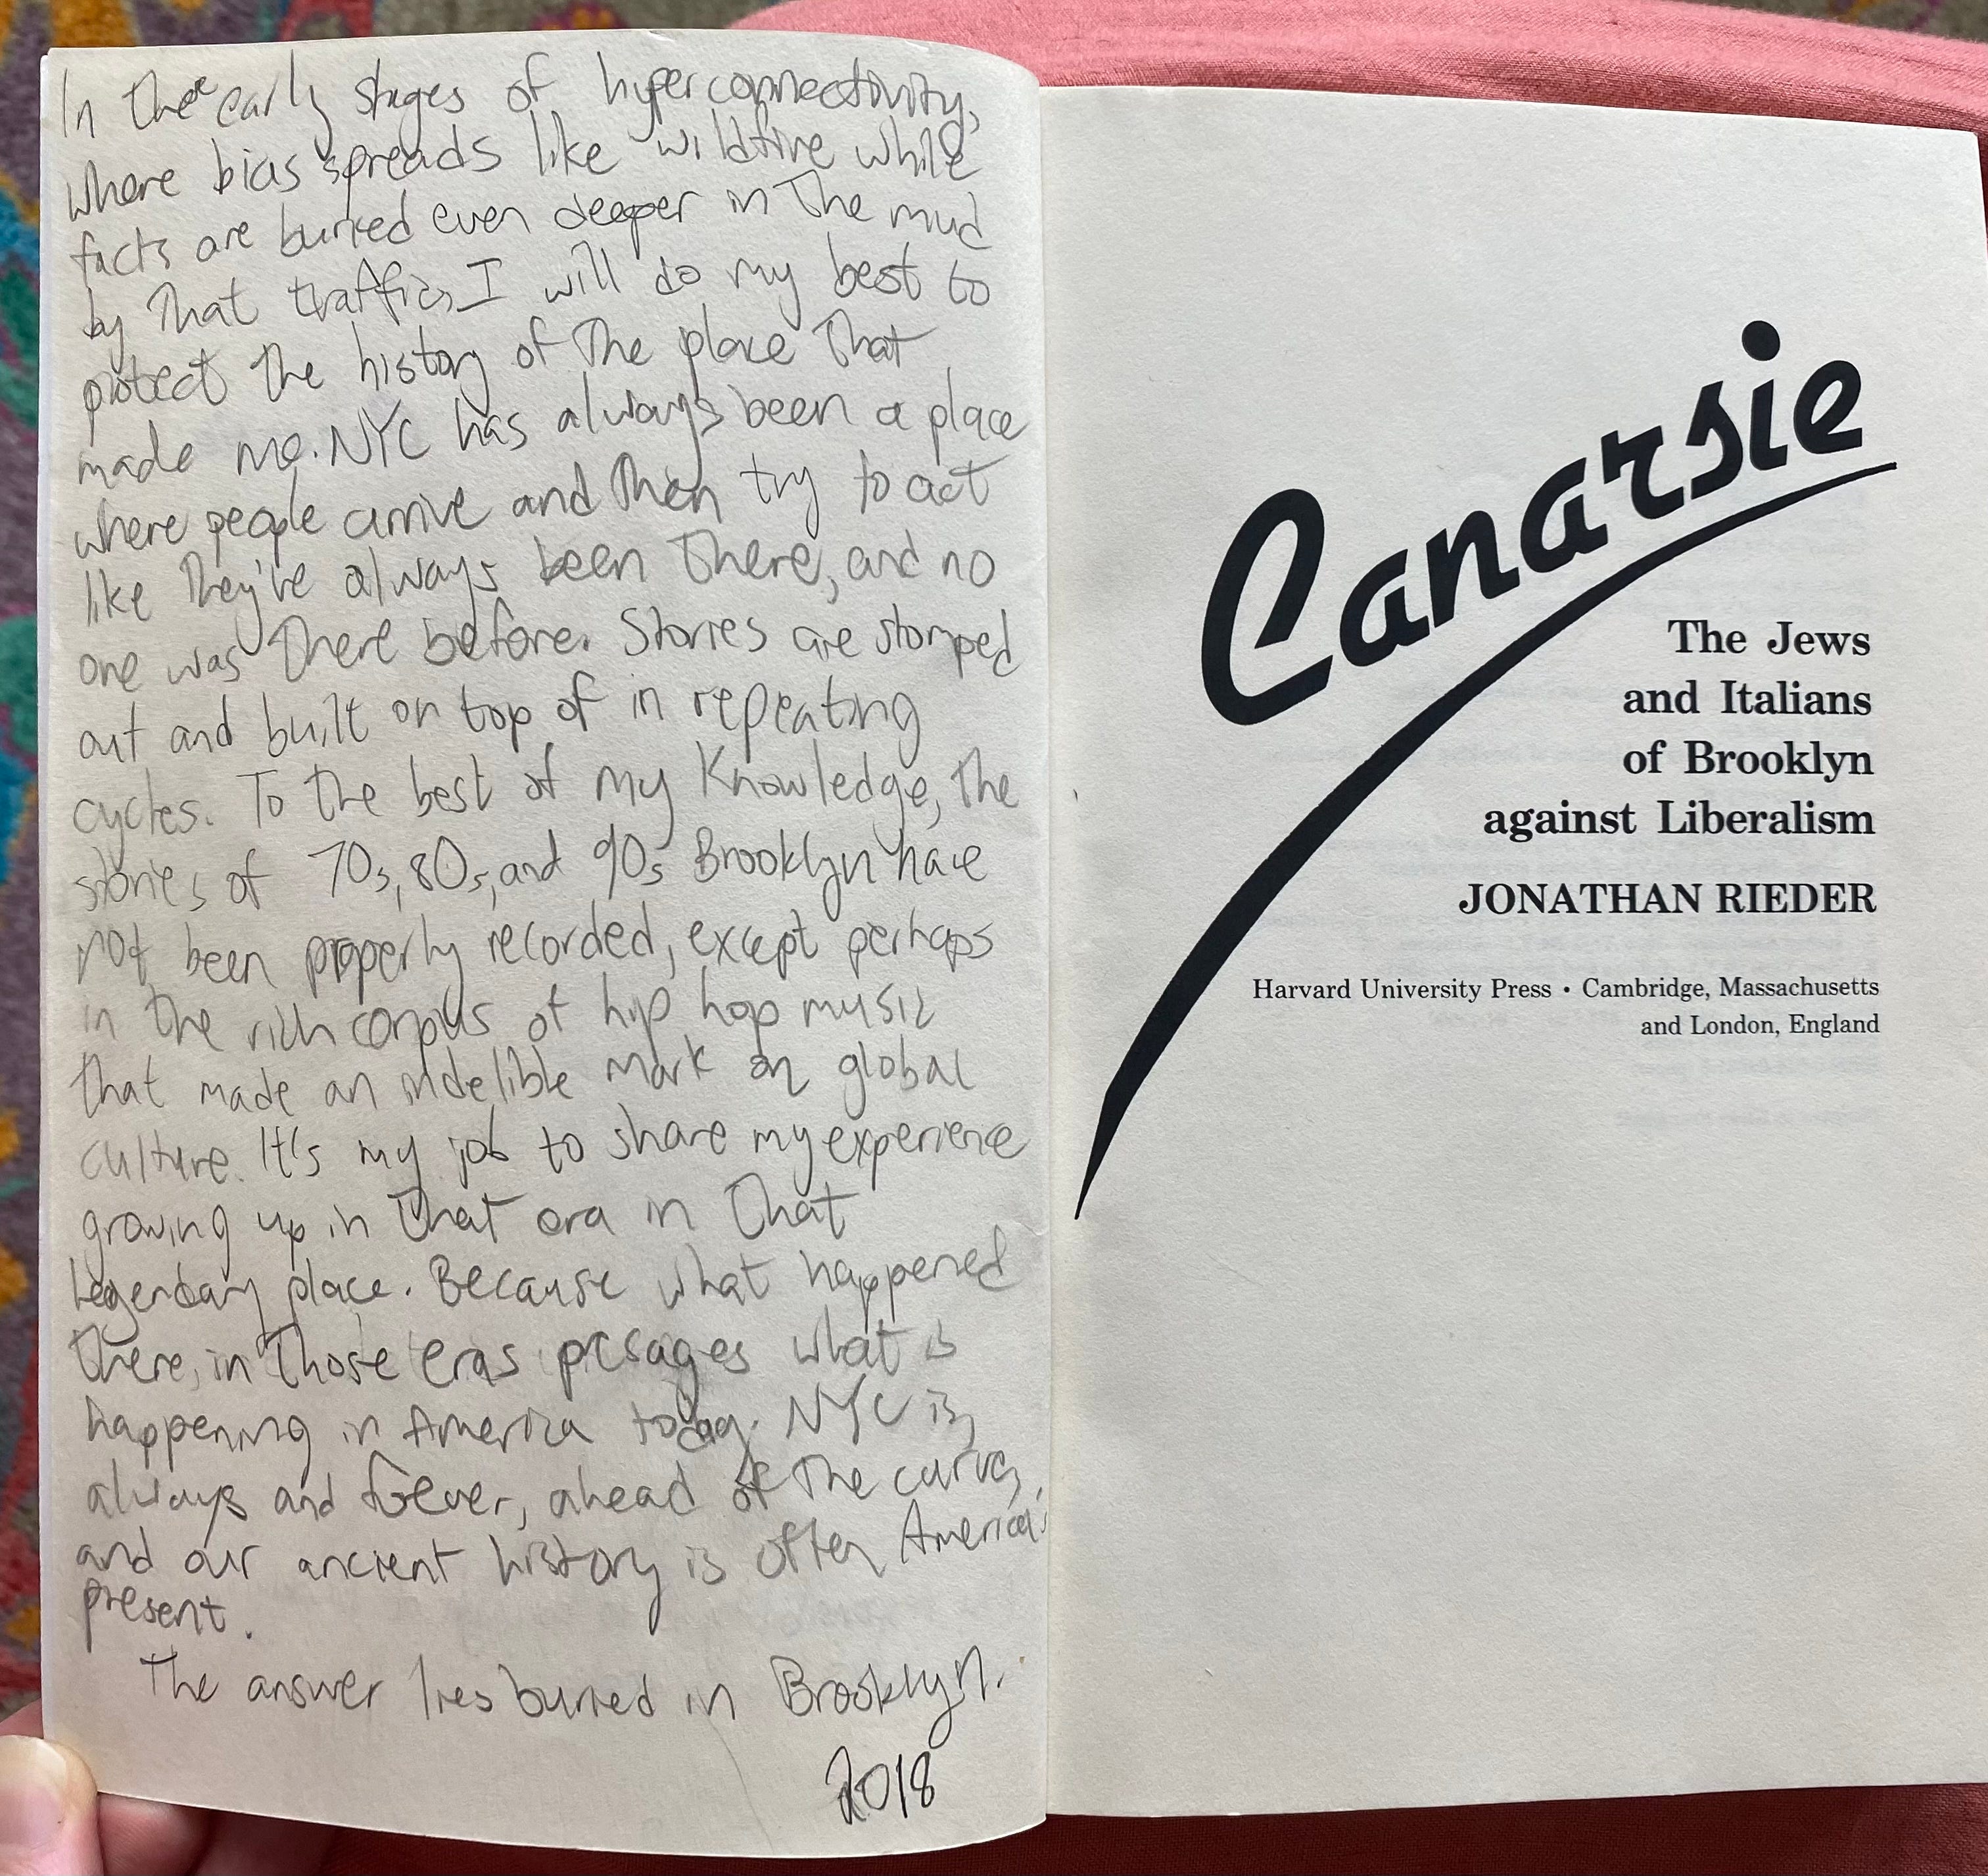 In these early stages of hyperconnectivity,
where bias spreads like wildfire while
facts are buried even deeper in the mud
by that traffic, I will do my best to
protect the history of the place that
made me. NYC has always been a place
where people arrive and then try to act
like they've always been there, and no
one was there before. Stories are stomped
out and built on top of in repeating
cycles. To the best of my knowledge, the
stories of 70s, 80s, and 90s Brooklyn have
not been properly recorded, except perhaps
in the rich corpus of hip hop music
that made an indelible mark on global
culture. It's my job to share my experience
growing up in that era in that
legendary place. Because what happened
there, in those eras presages what is
happening in America today. NYC is,
always and forever, ahead of the curve,
and our ancient history is often America's
present.
The answer lies buried in Brooklyn.
2018
Canarsie
The Jews
and Italians
of Brooklyn
against Liberalism
JONATHAN RIEDER
Harvard University Press • Cambridge, Massachusetts
and London, England